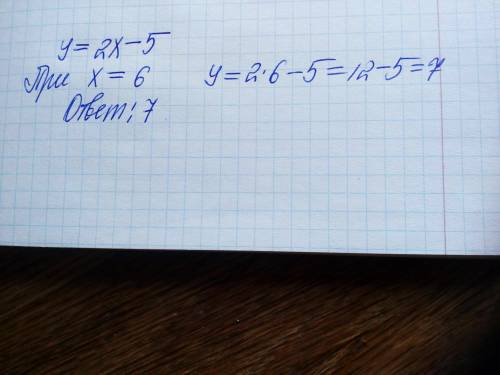 y = 2x - 5
При x = 6 y = 2·6 - 5 = 12 - 5 = 7
Ответ: 7